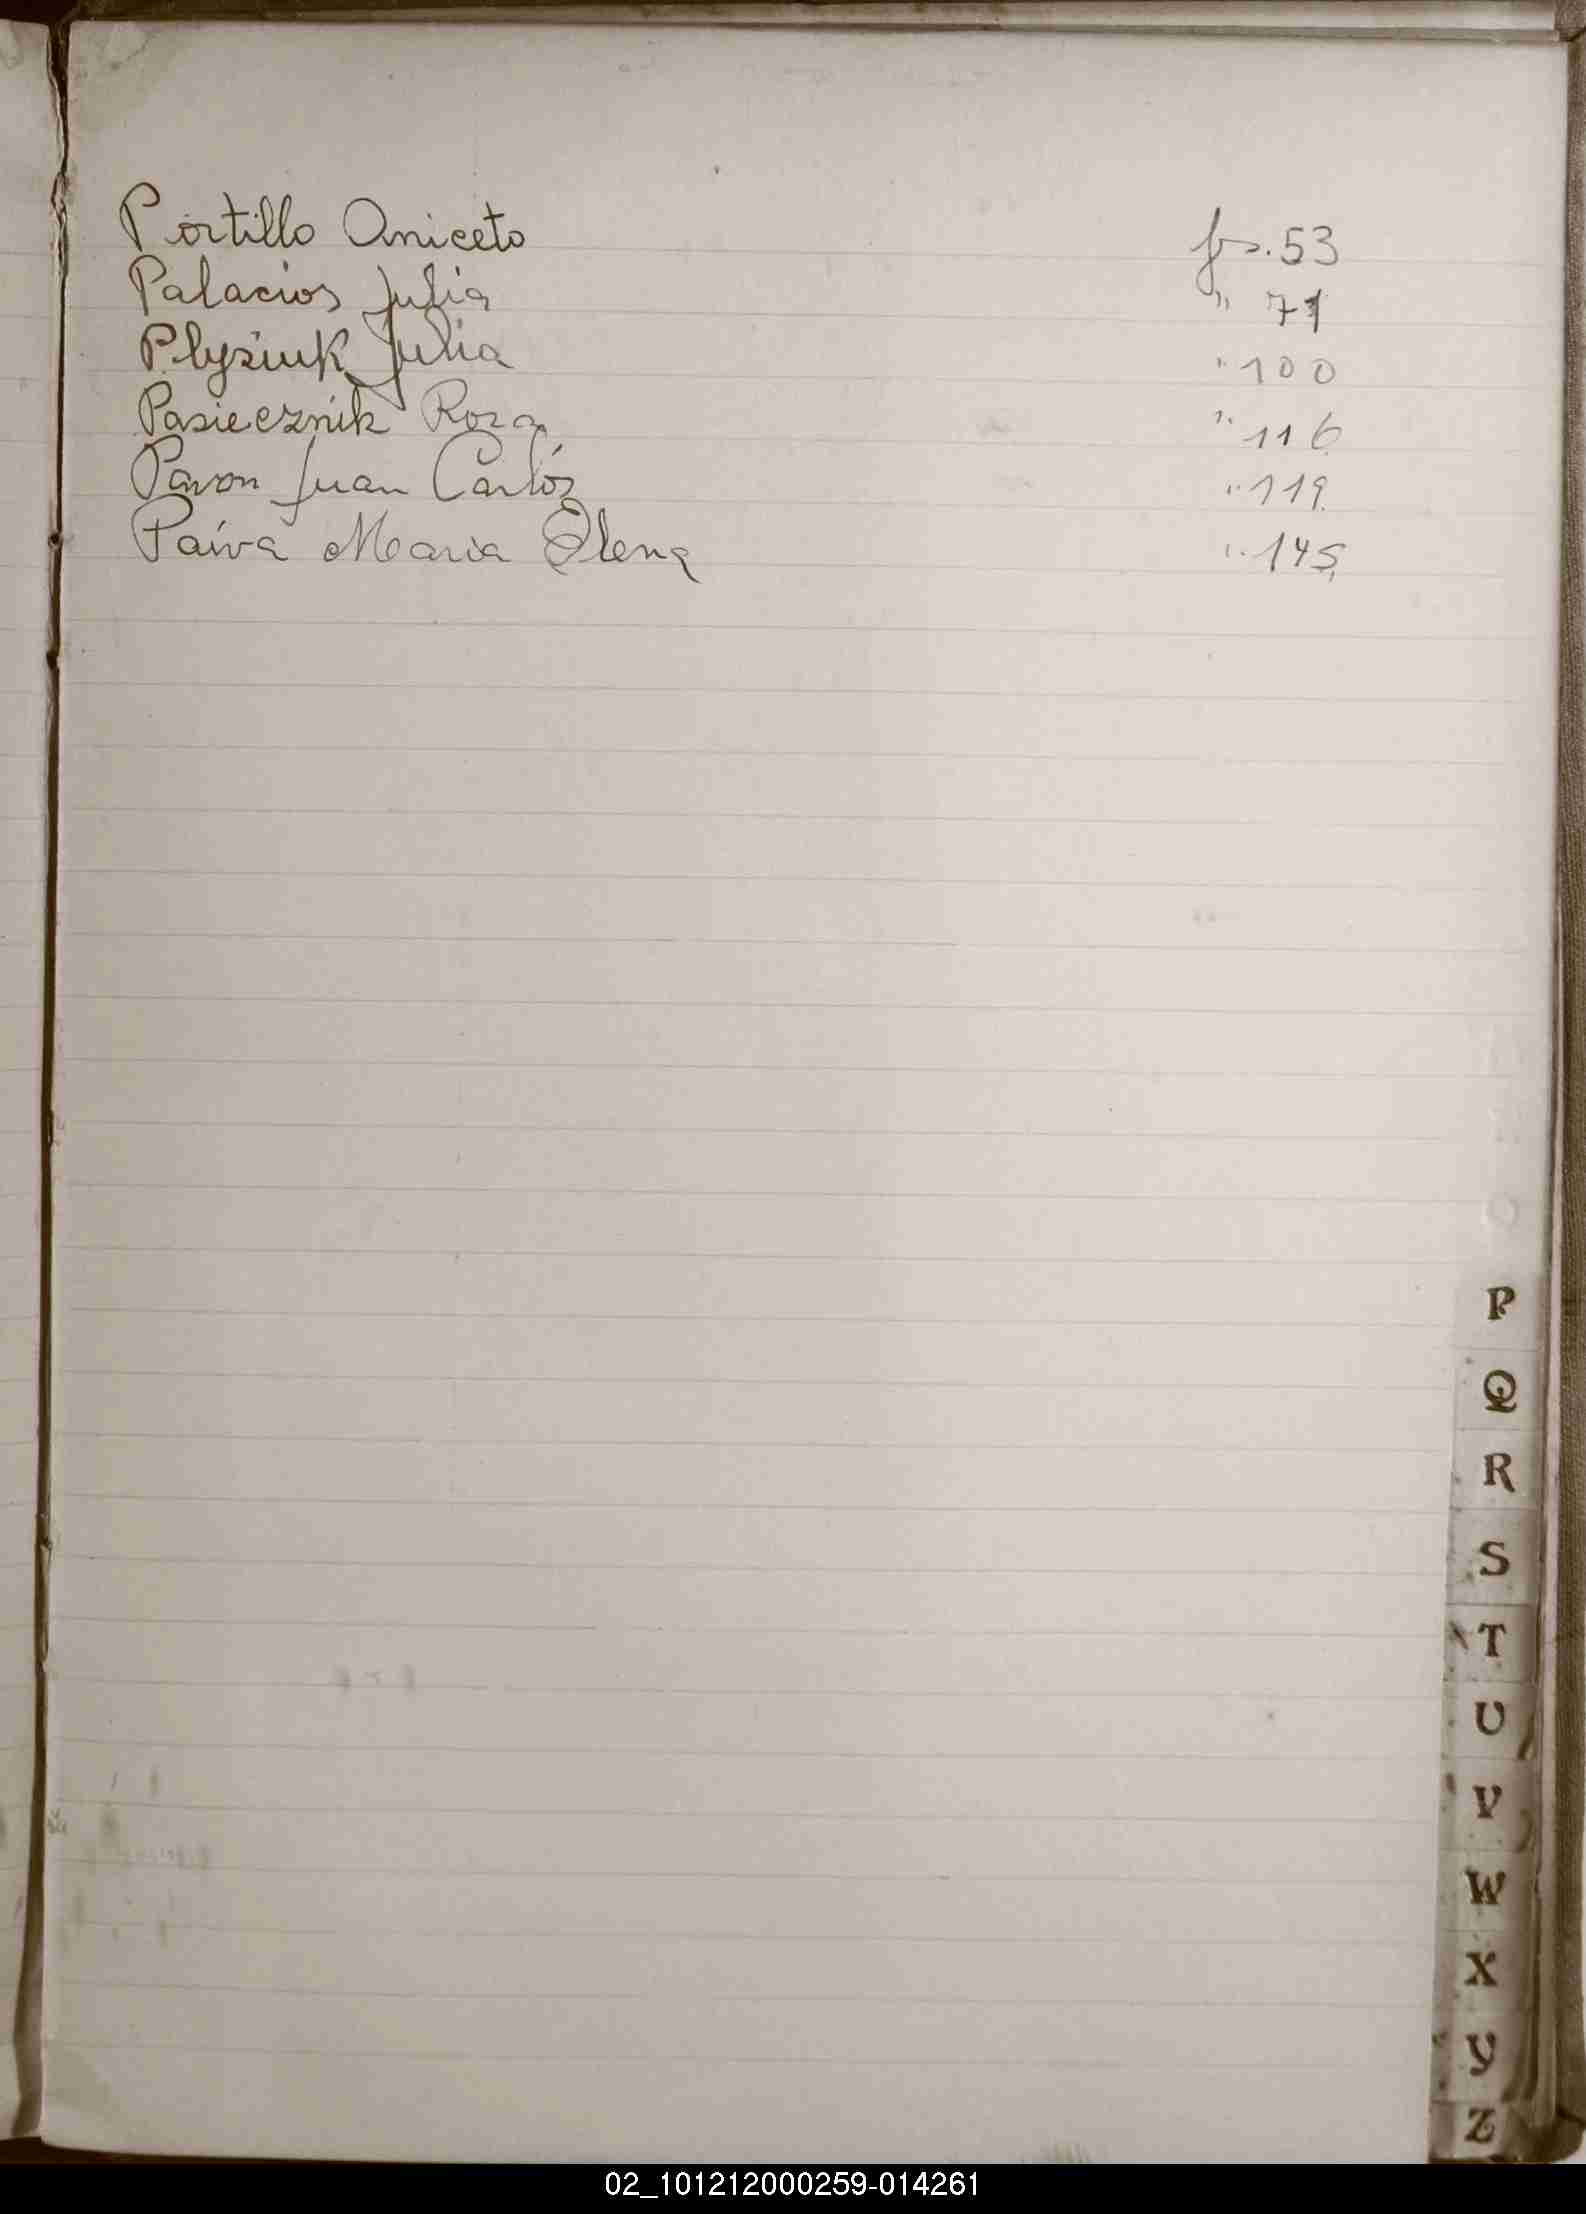 Portillo Aniceto fs. 53
Palacios Julia " 71
Plysiuk Julia " 100
Pasiecznik Roza " 116
Pavon Juan Carlós " 119
Paiva Maria Elena " 145
P
Q
R
S
T
U
V
W
X
Y
Z
02_101212000259-014261